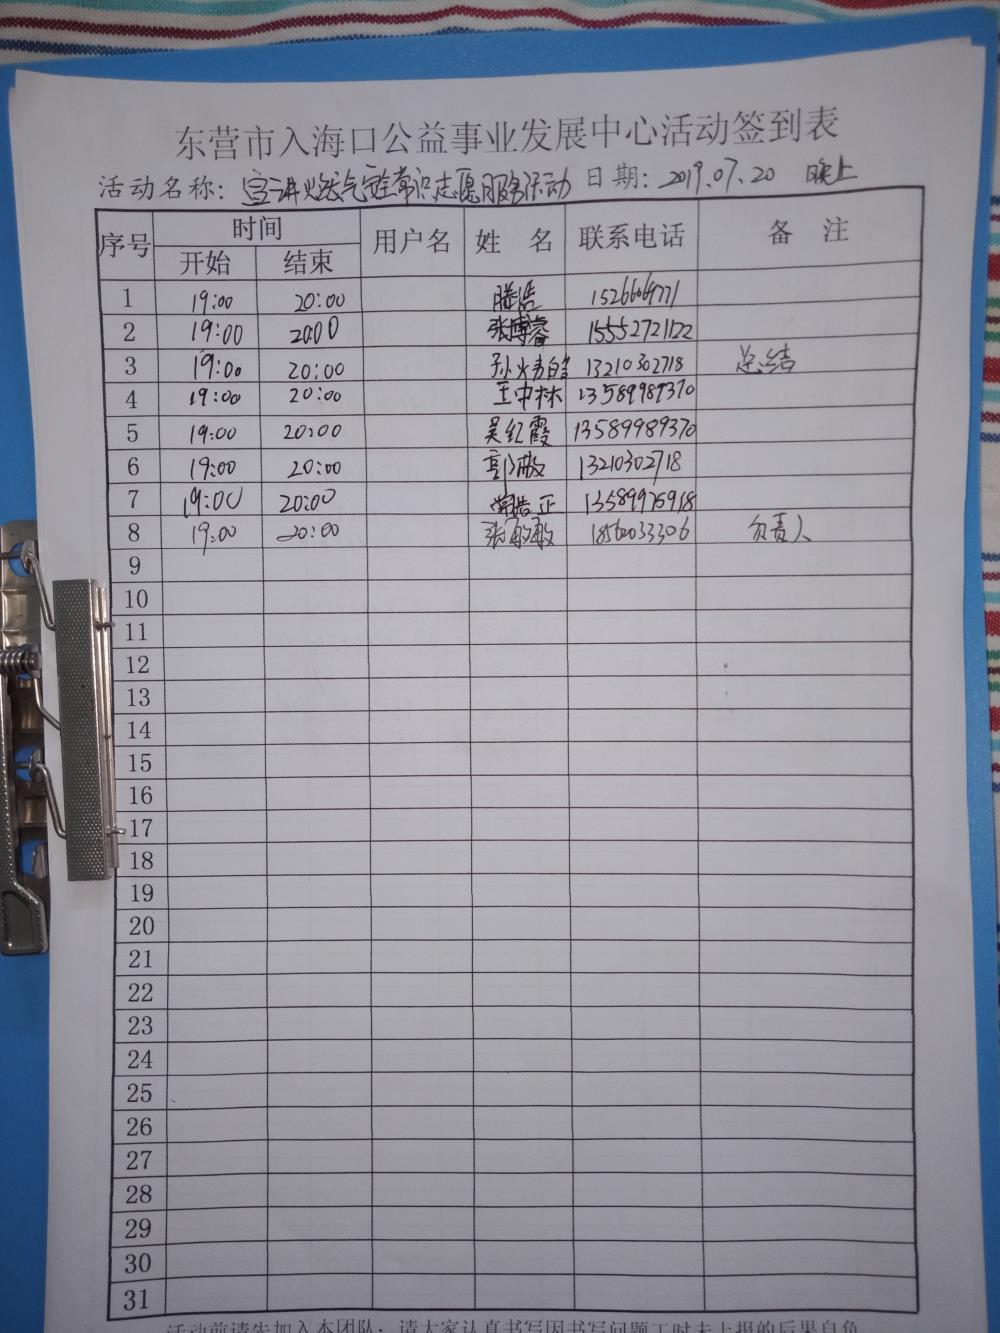 东营市入海口公益事业发展中心活动签到表
活动名称：宣讲燃气安全常识志愿服务活动 日期：2019.07.20 晚上
序号 时间 用户名 姓 名 联系电话 备 注
开始 结束
1 19:00 20:00 滕浩
2 19:00 20:00 张博睿 15552721122
3 19:00 20:00 13210302718 总结
4 19:00 20:00 王中林 13589989370
5 19:00 20:00 吴红霞 13589989370
6 19:00 20:00 郭敏 13210302718
7 19:00 20:00 13589975918
8 19:00 20:00 张敏敏 18562033306 负责人
9
10
11
12
13
14
15
16
17
18
19
20
21
22
23
24
25
26
27
28
29
30
31
活动前请先加入本团队；请大家认真书写因书写问题工时未上报的后果自负